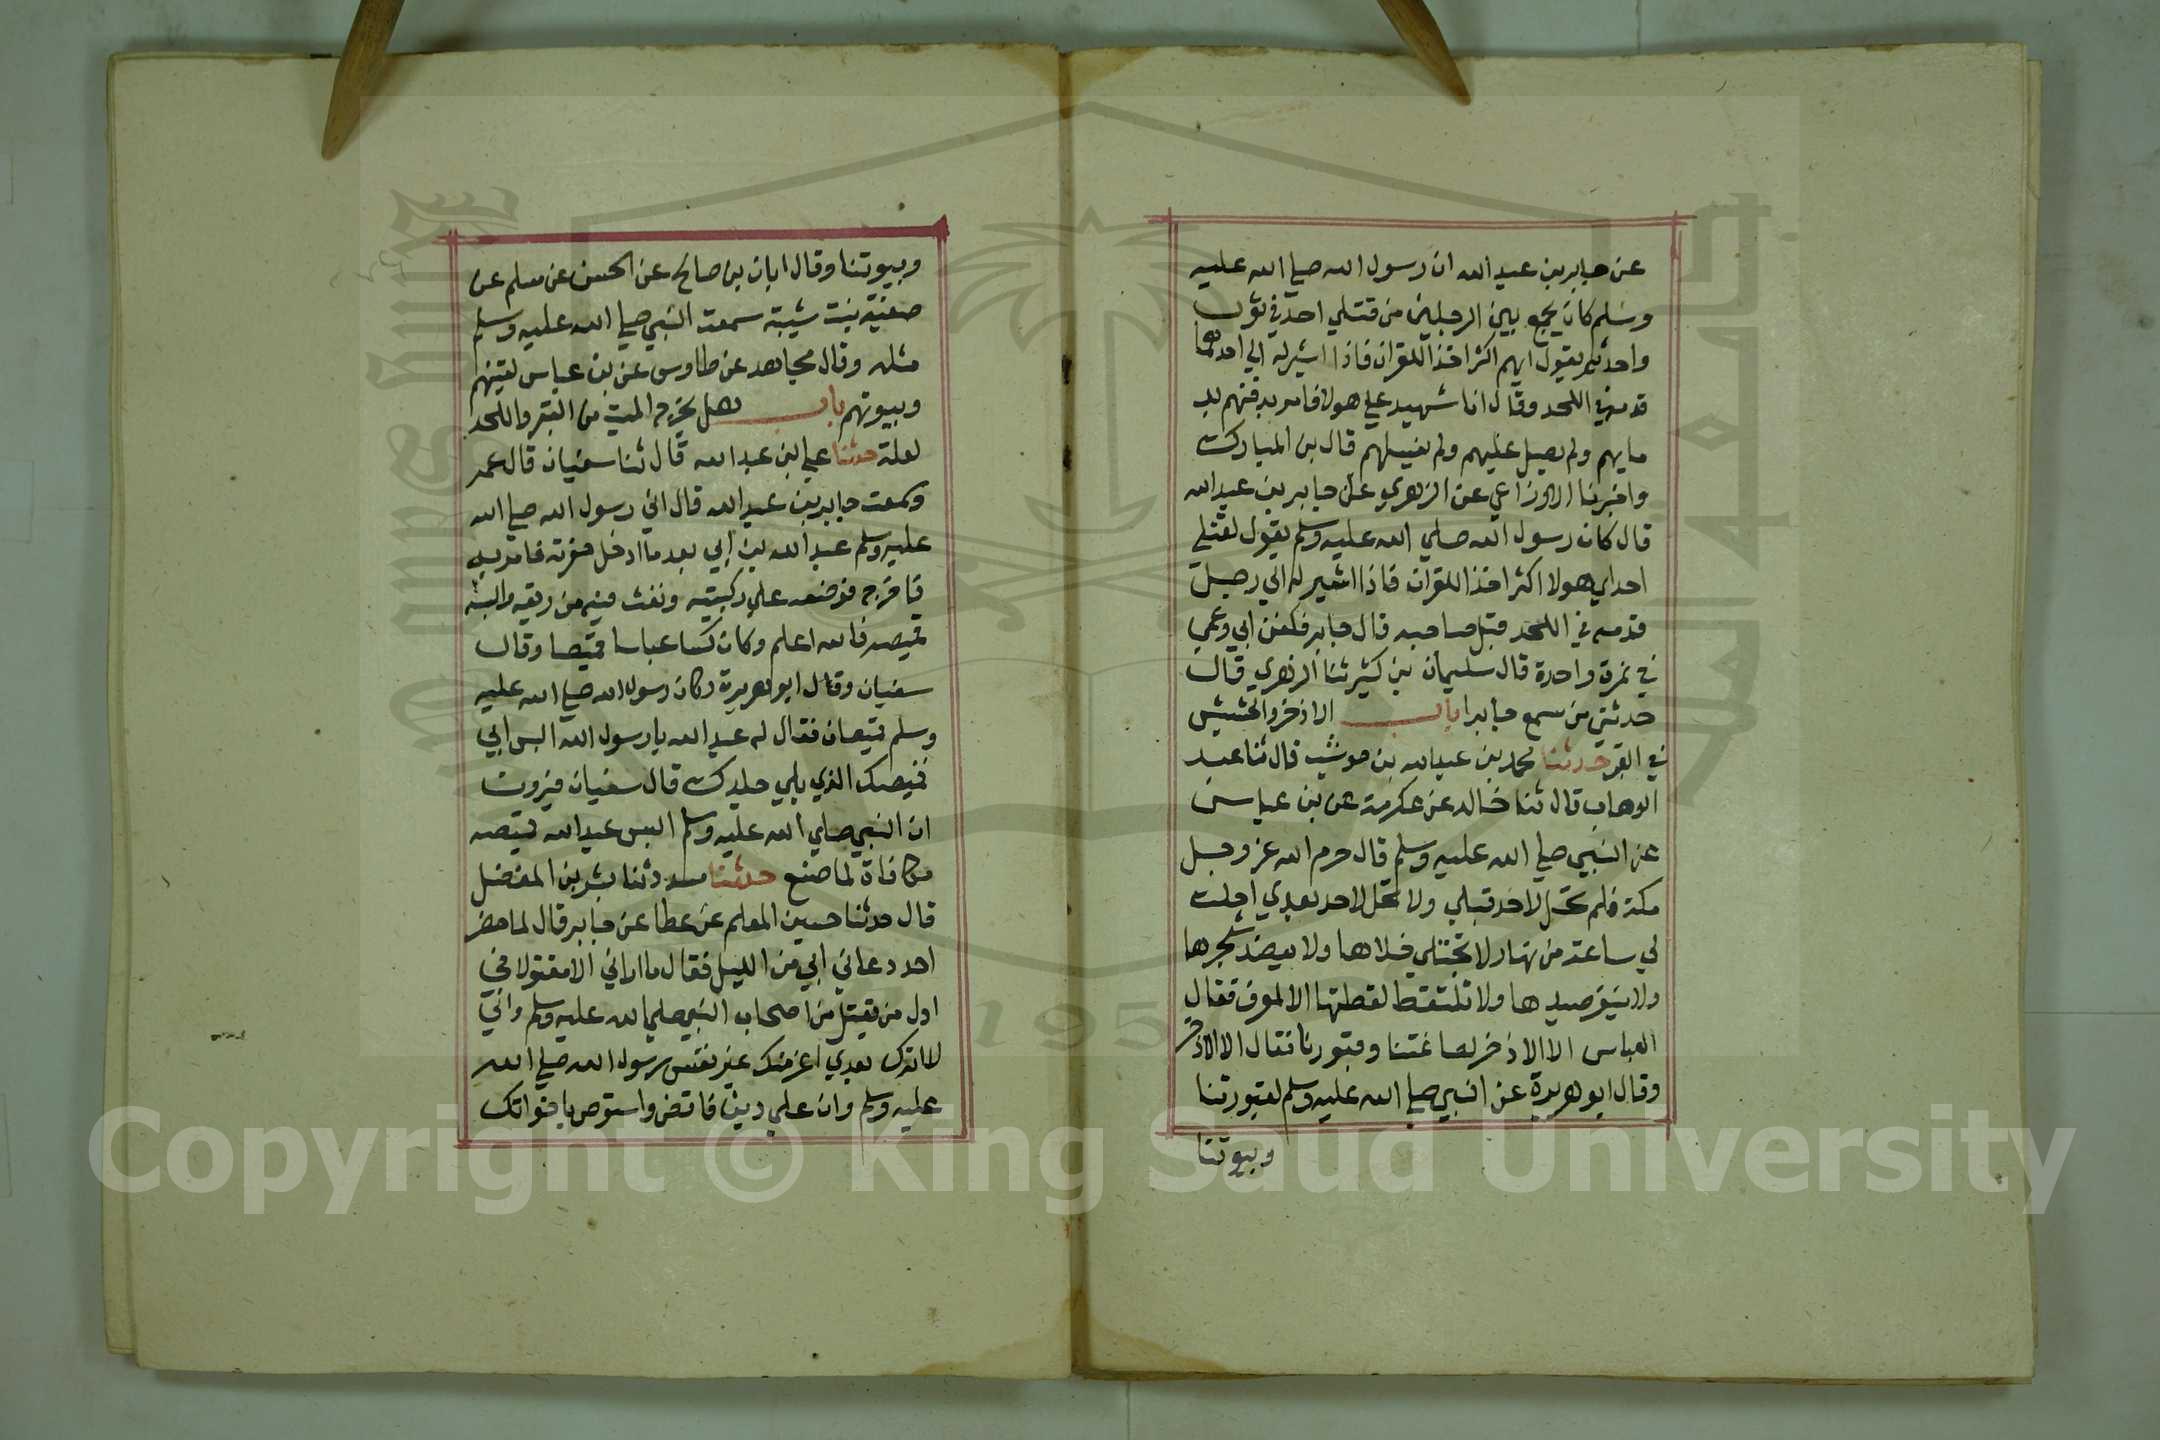 عن جابر بن عبد الله ان رسول الله صلي الله عليه
وسلم كان يجمع بين الرجلين من قتلي احد في ثوب
واحد ثم يقول ايهم اكثر اخذا للقران فاذا اشير له الي احدهما
قدمه في اللحد وقال انا شهيد علي هولا فامر بدفنهم بد
مايهم ولم يصل عليهم ولم يغسلهم قال بن المبارك
واخبرنا الاوزاعي عن الزهري عن جابر بن عبد الله
قال كان رسول الله صلي الله عليه وسلم يقول لقتلي
احد اي هولا اكثر اخذا للقران فاذا اشير له الي رجل
قدمه في اللحد قبل صاحبه قال جابر فكفن ابي وعمي
في نمرة واحدة قال سليمان بن كثير ثنا الزهري قال
حدثني من سمع جابرا باب الاذخر والحشيش
في القبر حدثنا محمد بن عبد الله بن حوشب قال ثنا عبد
الوهاب قال ثنا خالد عن عكرمة عن بن عباس
عن النبي صلي الله عليه وسلم قال حرم الله عز وجل
مكة فلم تحل لاحد قبلي ولا تحل لاحد بعدي احلت
لي ساعة من نهار لا يختلي خلاها ولا يعضد شجرها
ولا ينفر صيدها ولا تلتقط لقطتها الا لمعرف فقال
العباس الا الاذخر لصاغتنا وقبورنا فقال الا الاذخر
وقال ابو هريرة عن النبي صلي الله عليه وسلم لقبورنا
وبيوتنا
وبيوتنا وقال ابان بن صالح عن الحسن بن مسلم عن
صفية بنت شيبة سمعت النبي صلي الله عليه وسلم
مثله وقال مجاهد عن طاوس عن بن عباس لقينهم
وبيوتهم باب هل يخرج الميت من القبر واللحد
لعلة حدثنا علي ابن عبد الله قال ثنا سفيان قال عمر
وسمعت جابر بن عبد الله قال اتي رسول الله صلي الله
عليه وسلم عبد الله بن ابي بعد ما ادخل حفرته فامر به
فاخرج فوضعه علي ركبتيه ونفث فيه من ريقه والبسه
قميصه فالله اعلم وكان كسا عباسا قميصا وقال
سفيان وقال ابو هريرة وكان رسول الله صلي الله عليه
وسلم قميصان فقال له عبد الله يا رسول الله البس ابي
قميصك الذي يلي جلدك قال سفيان فيرون
ان النبي صلي الله عليه وسلم البس عبد الله قميصه
مكافاة لما صنع حدثنا مسدد ثنا بشر بن المفضل
قال حدثنا حسين المعلم عن عطا عن جابر قال لما حضر
احد دعاني ابي من الليل فقال ما اراني الا مقتولا في
اول من يقتل من اصحاب النبي صلي الله عليه وسلم واني
لا اترك بعدي اعز منك غير نفس رسول الله صلي الله
عليه وسلم وان علي دينا فاقض واستوص باخواتك
Copyright © King Saud University
1957